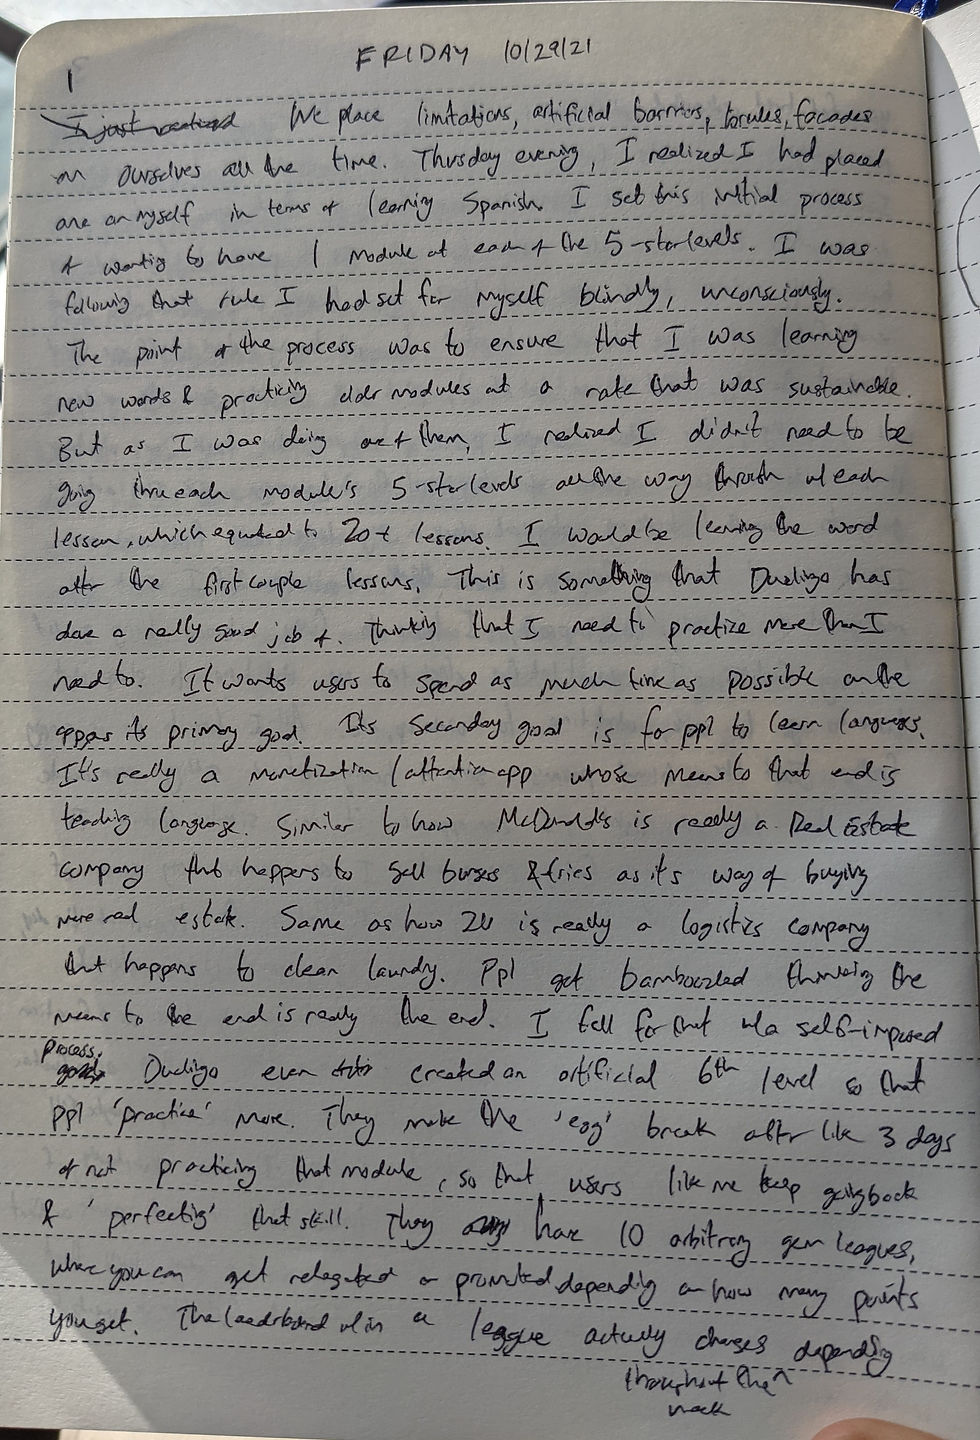 FRIDAY 10/29/21
1
I just realized We place limitations, artificial barriers, rules, facades
on ourselves all the time. Thursday evening, I realized I had placed
one on myself in terms of learning Spanish. I set this initial process
of wanting to have 1 module at each of the 5-star levels. I was
following that rule I had set for myself blindly, unconsciously.
The point of the process was to ensure that I was learning
new words & practicing older modules at a rate that was sustainable.
But as I was doing one of them, I realized I didn't need to be
going thru each module's 5-star levels all the way through w/ each
lesson, which equated to 20+ lessons. I would be learning the word
after the first couple lessons. This is something that Duolingo has
done a really good job of. Thinking that I need to practize more than I
need to. It wants users to spend as much time as possible on the
app as its primary goal. Its secondary goal is for ppl to learn languages.
It's really a monetization / attention app whose means to that end is
teaching language. Similar to how McDonald's is really a Real Estate
company that happens to sell burgers & fries as its way of buying
more real estate. Same as how 2U is really a logistics company
that happens to clean laundry. Ppl get bamboozled thinking the
means to the end is really the end. I fell for that w/ a self-imposed
process. Duolingo even created an artificial 6th level so that
ppl 'practice' more. They make the 'egg' break after like 3 days
of not practicing that module, so that users like me keep going back
& 'perfecting' that skill. They have 10 arbitrary gem leagues,
where you can get relegated or promoted depending on how many points
you get. The leaderboard w/in a league actually changes depending
throughout the ^
week